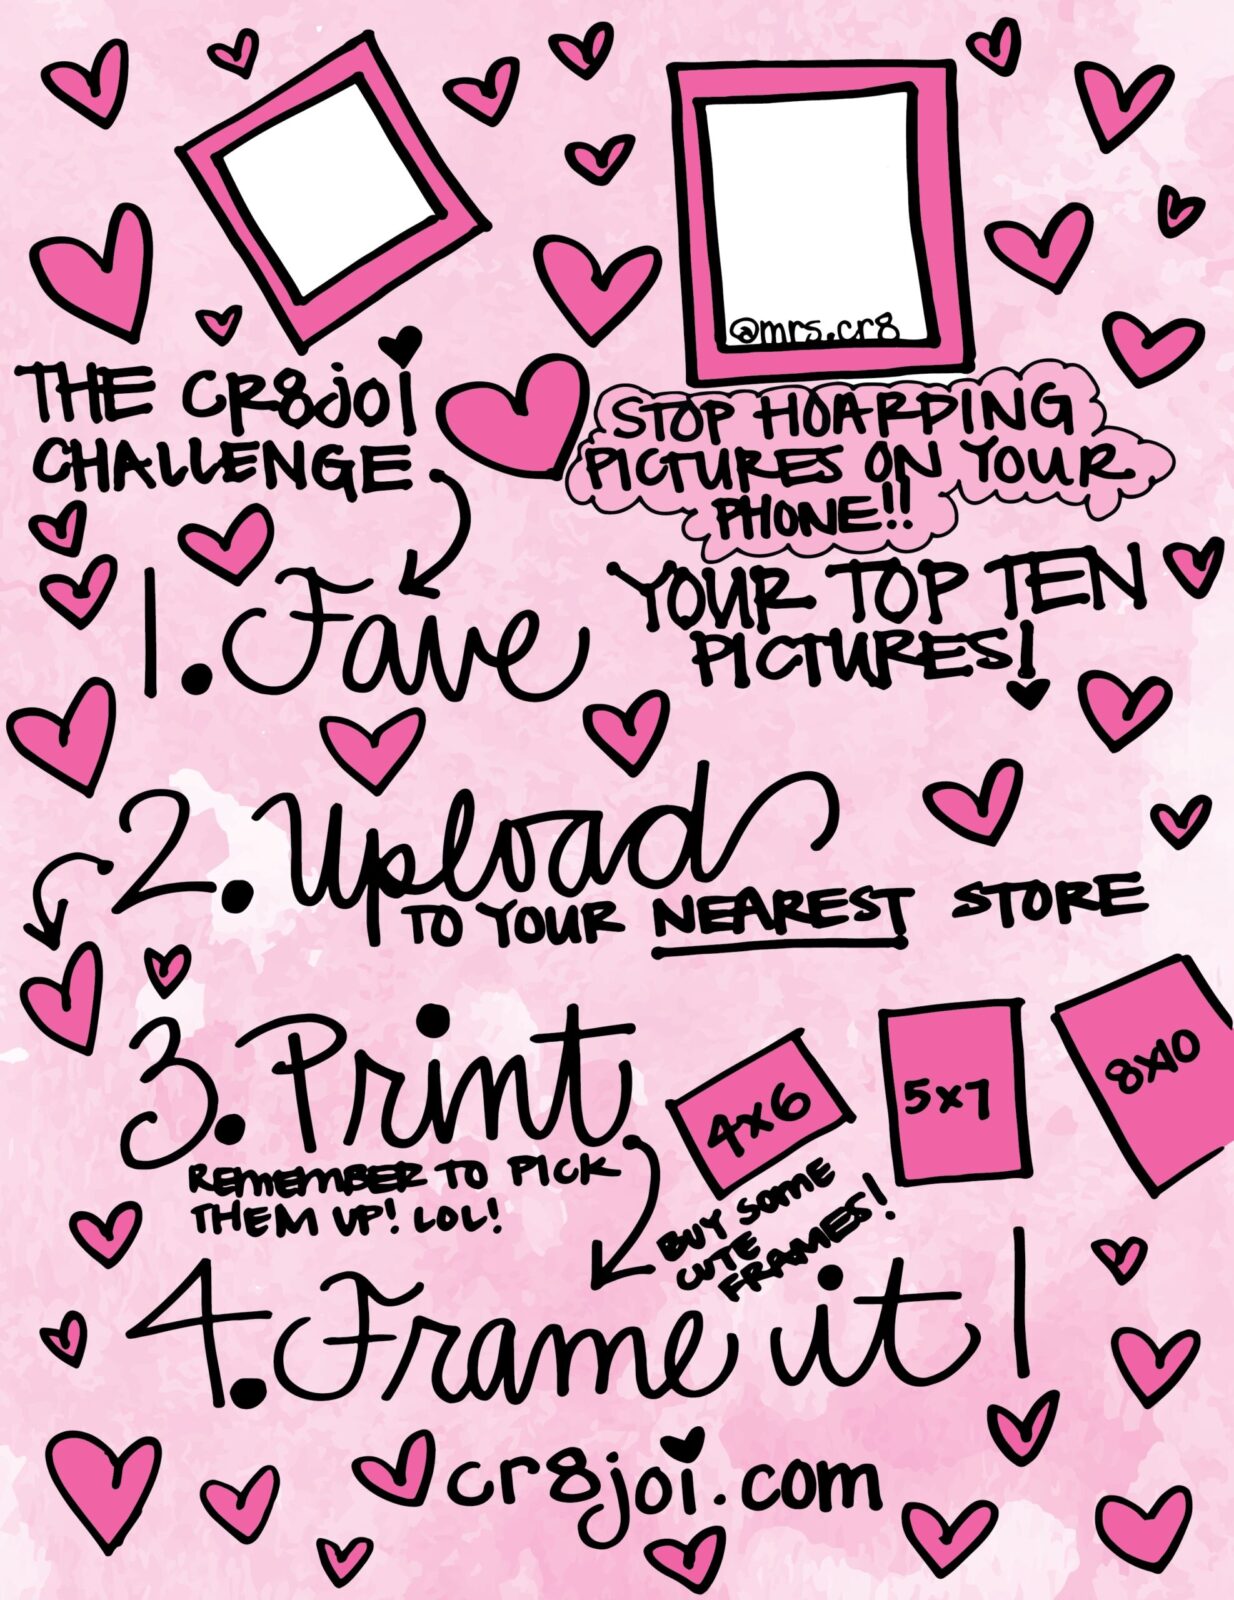 @mrs.cr8
THE CR8joi
CHALLENGE
STOP HOARDING
PICTURES ON YOUR
PHONE!!
1. Fave
YOUR TOP TEN
PICTURES!
2. Upload
TO YOUR NEAREST STORE
3. Print
REMEMBER TO PICK
THEM UP! LOL!
4x6
5x7
8x10
BUY SOME
CUTE
FRAMES!
4. Frame it!
cr8joi.com